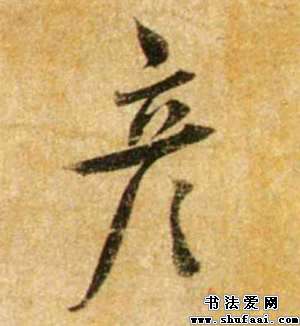 彦
书法爱网
www.shufaai.com